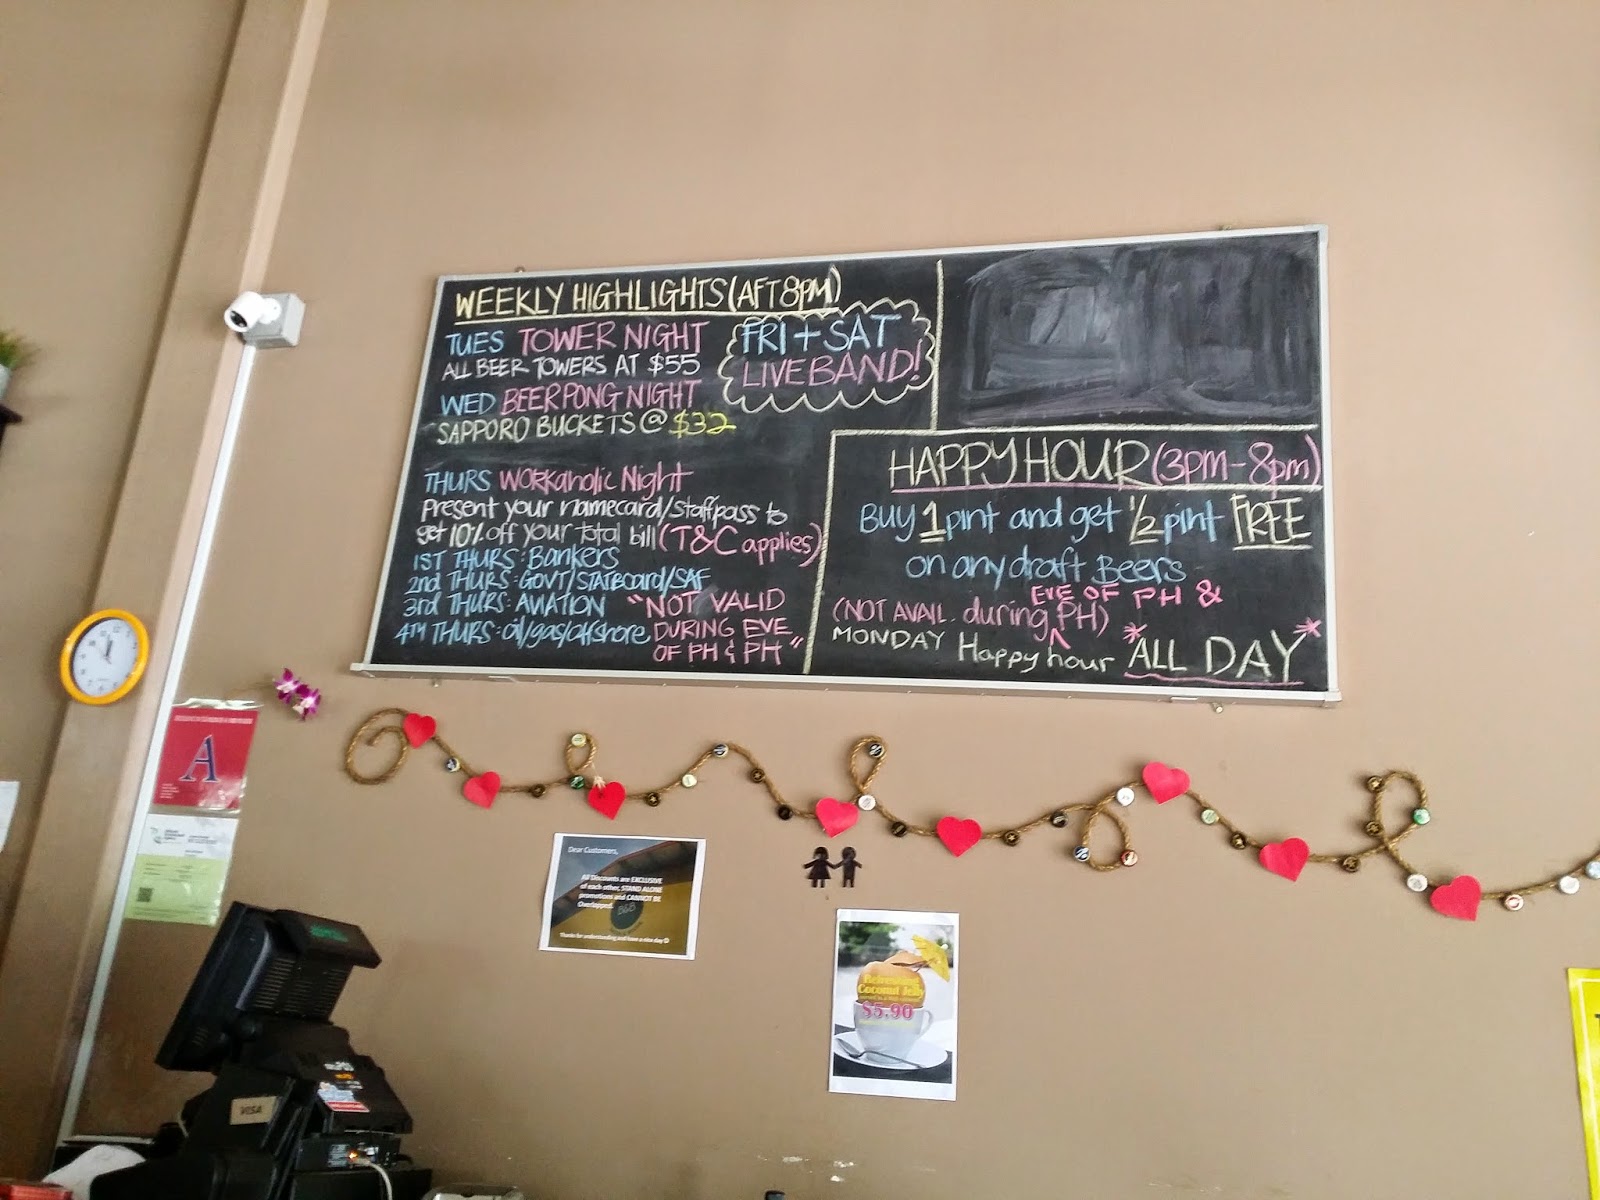 WEEKLY HIGHLIGHTS (AFT 8PM)
TUES TOWER NIGHT
ALL BEER TOWERS AT $55
WED BEERPONG NIGHT
SAPPORO BUCKETS @ $32
FRI + SAT
LIVE BAND!
THURS WORKaholic Night
Present your namecard/staffpass to
get 10% off your total bill (T&C applies)
1ST THURS: Bankers
2nd THURS: GOVT/STATBOARD/SAF
3rd THURS: AVIATION
4TH THURS: oil/gas/offshore
"NOT VALID
DURING EVE
OF PH & PH"
HAPPY HOUR (3pm - 8pm)
BUY 1 pint and get 1/2 pint FREE
on any draft Beers
(NOT AVAIL. during EVE OF PH & PH)
MONDAY Happy hour *ALL DAY*
A
Dear Customers,
All Discounts are EXCLUSIVE
of each other, STAND ALONE
promotions and CANNOT BE
Overlapped.
Thanks for understanding and have a nice day
Refreshing
Coconut Jelly
$5.90
VISA